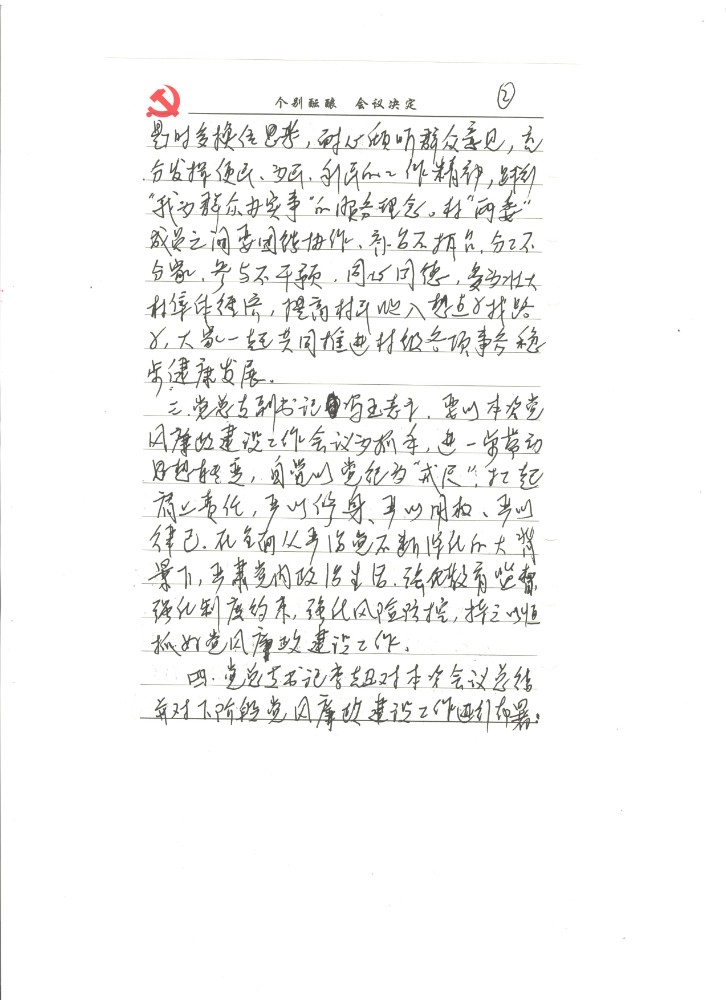 个别酝酿 会议决定
②
题时多换位思考，耐心倾听群众意见，充
分发挥便民、为民、利民的工作精神，践行
“我为群众办实事”的服务理念。村“两委”
成员之间要团结协作、补台不拆台，分工不
分家、参与不干预，同心同德，多为壮大
村集体经济，提高村民收入想点子找路
子，大家一起共同推进村级各项事务稳
步健康发展。
三、党总支副书记 要以本次党
风廉政建设工作会议为抓手，进一步带动
思想转变，自觉以党纪为“戒尺”，扛起
肩上责任，严以修身、严以用权、严以
律己。在全面从严治党不断深化的大背
景下，严肃党内政治生活，强化教育监督
强化制度约束，强化风险防控，持之以恒
抓好党风廉政建设工作。
四、党总支书记李 对本次会议总结
并对下阶段党风廉政建设工作进行部署：